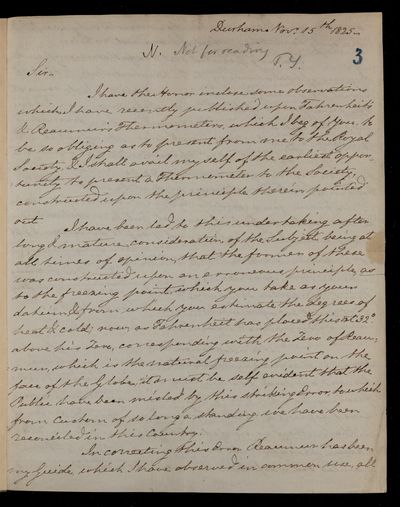 Durham Nov. 15th 1825
N. Not for reading
T. Y.
3
Sir
I have the Honor inclose some observations
which I have recently published upon Fahrenheits
& Reaumurs Thermometers, which I beg of you, to
be so obliging as to present from me to the Royal
Society, & I shall avail myself of the earliest oppor-
tunity to present a Thermometer to the Society,
constructed upon the principle therein pointed
out
I have been led to this undertaking after
long & mature consideration of the Subject being at
all times of opinion, that the former of these
was constructed upon an erroneous principle, as
to the freezing point, which you take as your
datum, & from which you estimate the degrees of
heat & cold; now as Fahrenheit has placed this at 32°
above his Zero, corresponding with the Zero of Reau-
mur, which is the natural freezing point on the
face of the Globe, it must be self evident that the
Public have been misled by this striking Error, to which
from Custom of so long a standing we have been
reconciled in this Country.
In correcting this Error Reaumur has been
my Guide, which I have observed in common use, all